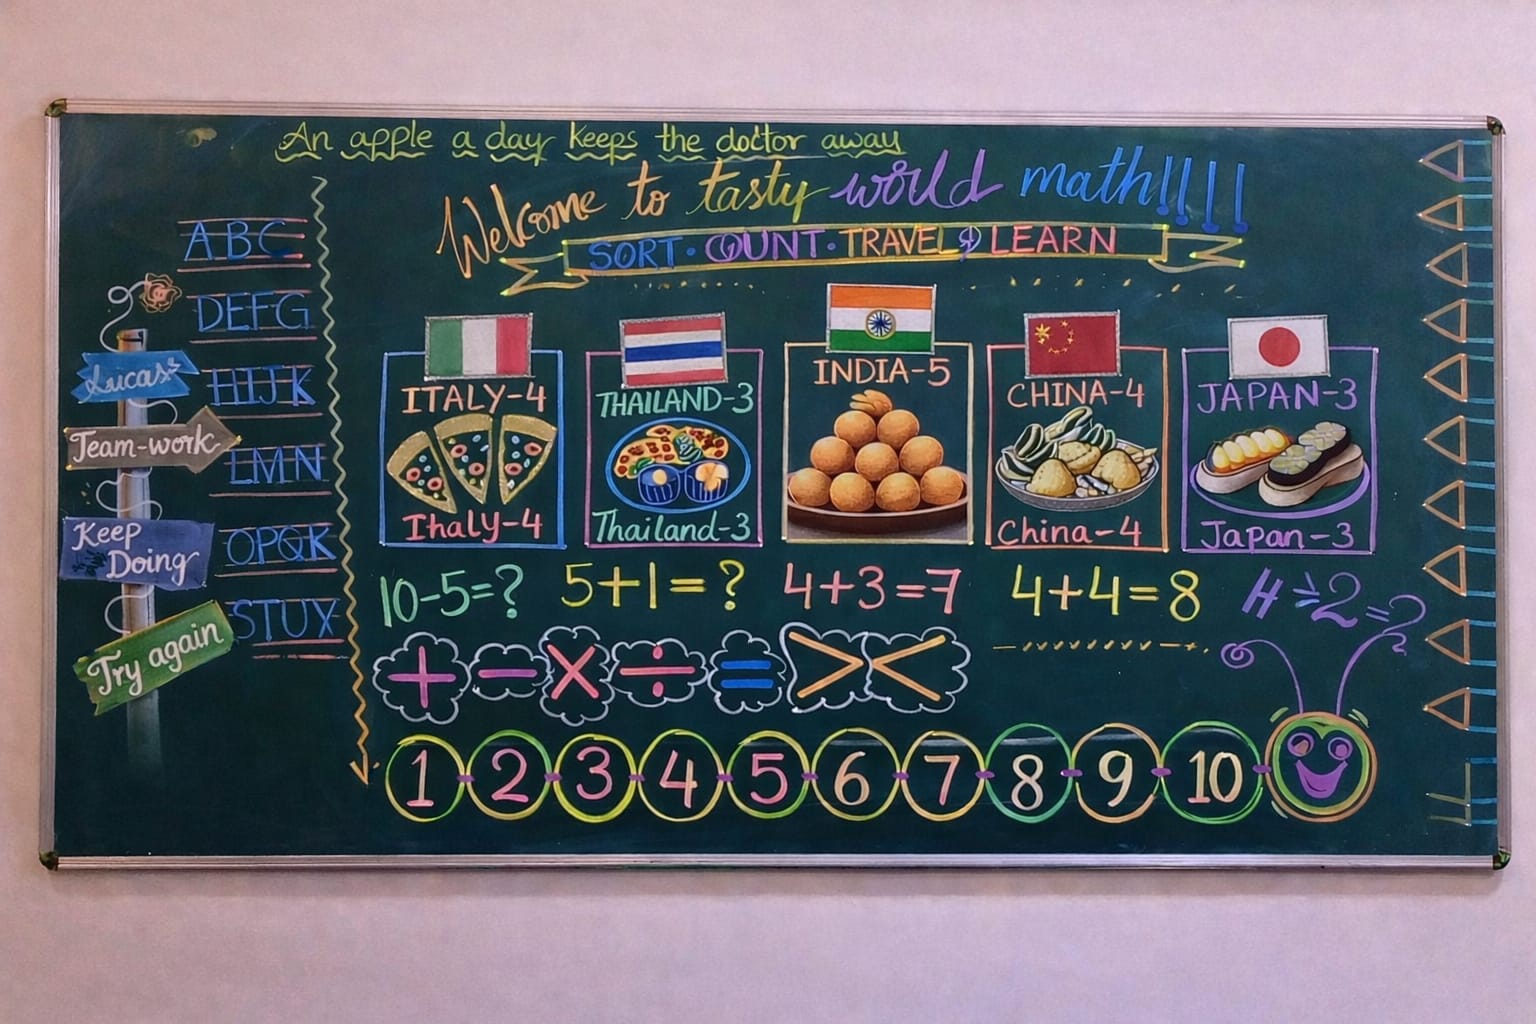 An apple a day keeps the doctor away
Welcome to tasty world math!!!!
SORT · COUNT · TRAVEL & LEARN
ABC
DEFG
HIJK
LMN
OPQK
STUX
Lucas
Team-work
Keep
Doing
Try again
ITALY-4
Ihaly-4
THAILAND-3
Thailand-3
INDIA-5
CHINA-4
China-4
JAPAN-3
Japan-3
10-5=?
5+1=?
4+3=7
4+4=8
4÷2=?
+ - × ÷ = > <
1 2 3 4 5 6 7 8 9 10